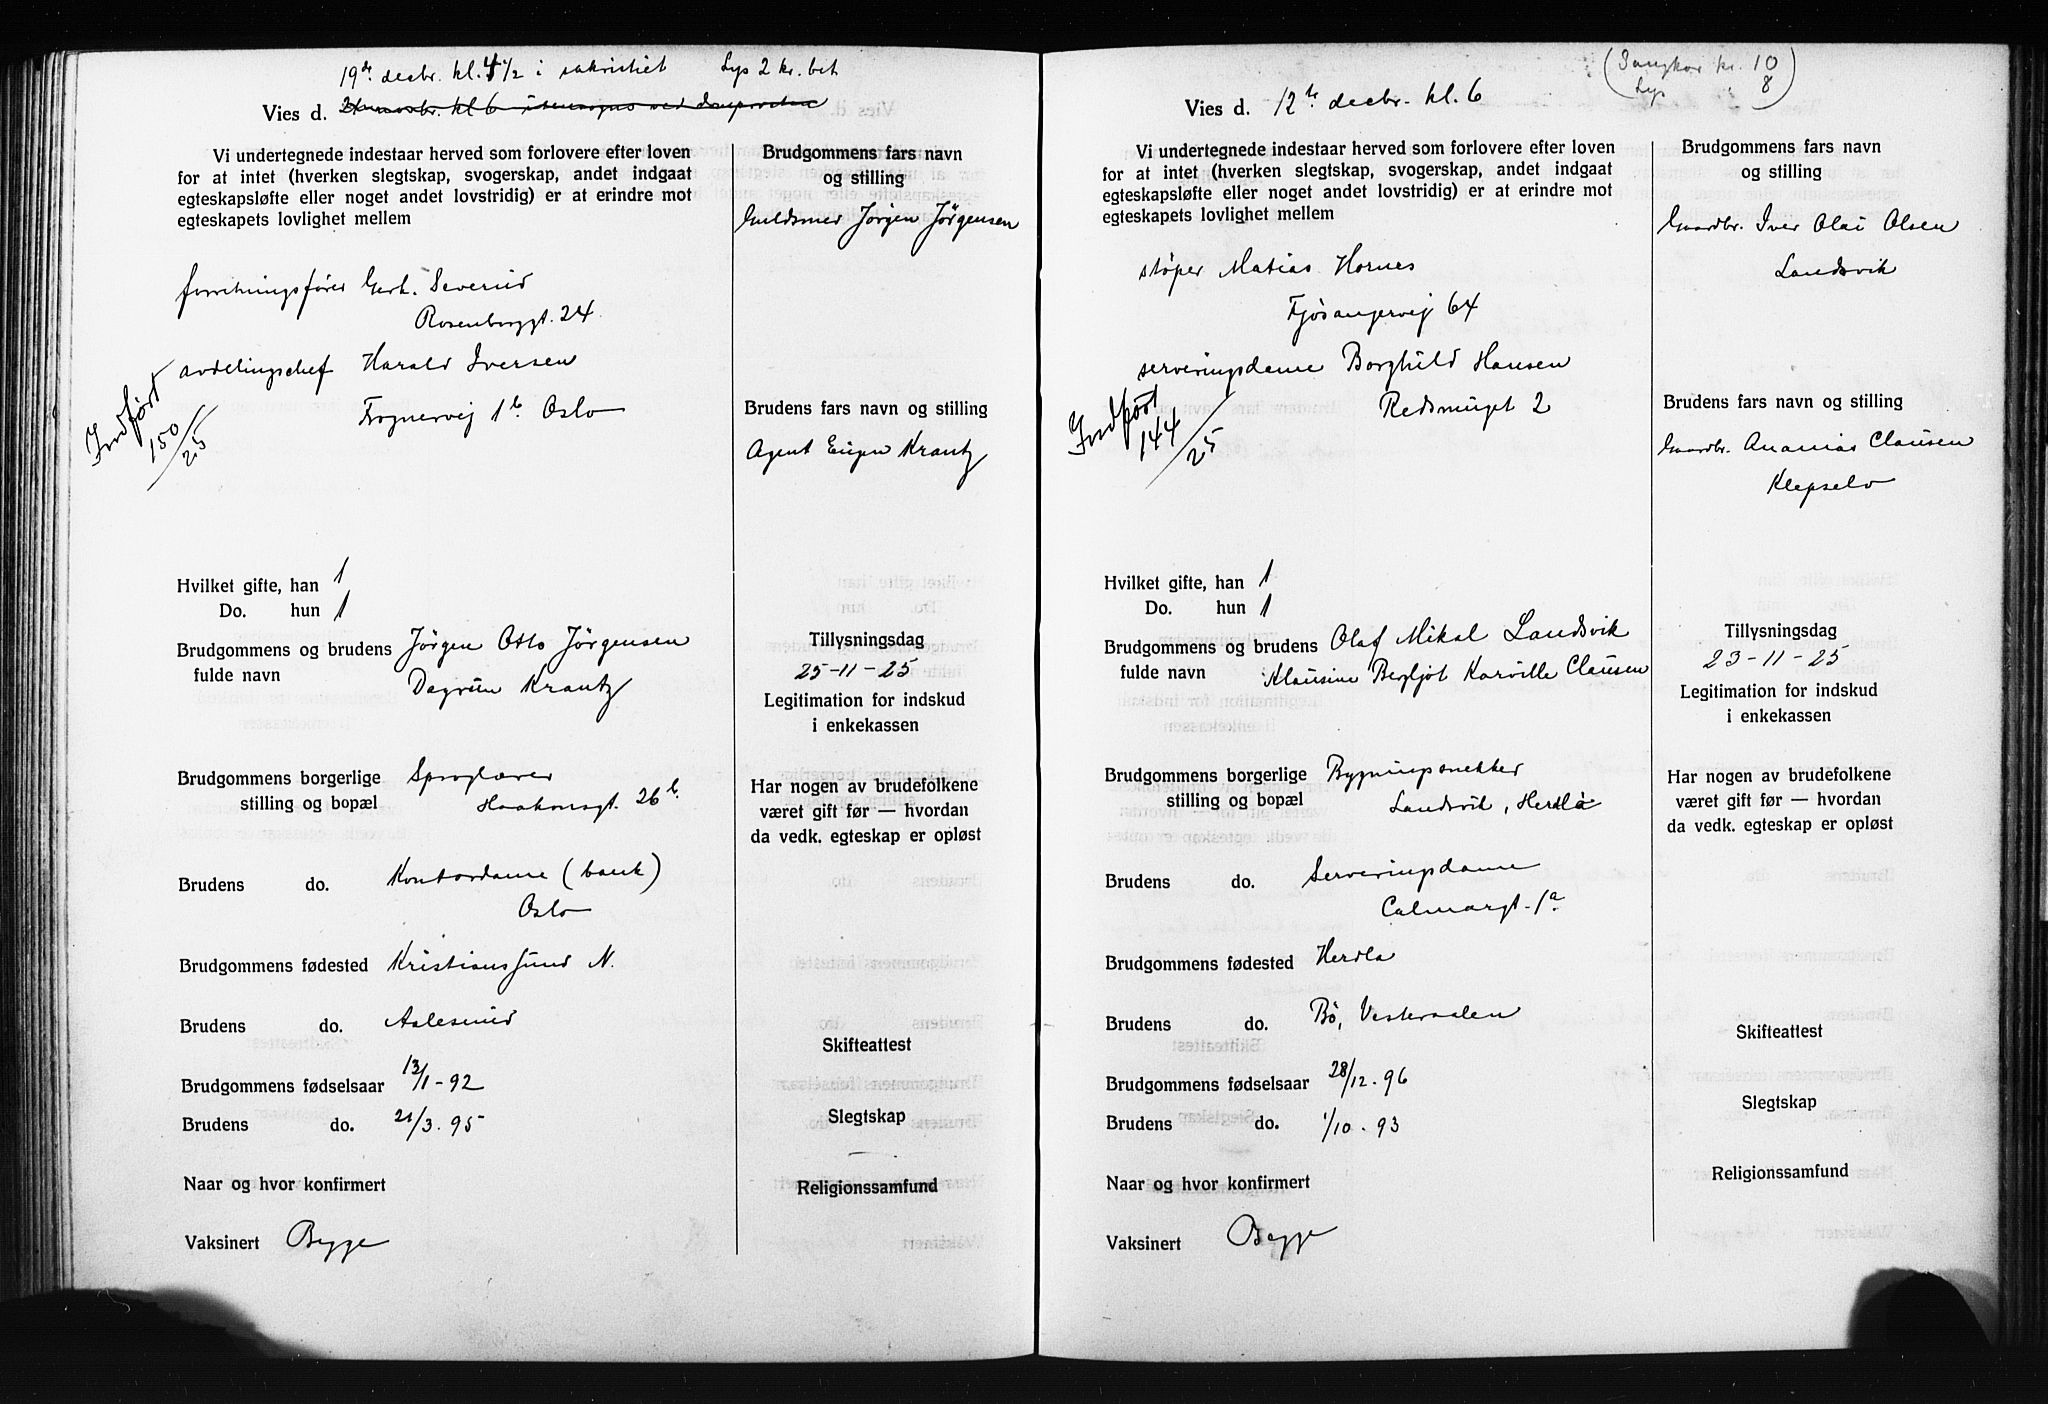 19de decbr. kl. 4 1/2 i sakristiet Lys 2 kr. bet
Vies d.
Vi undertegnede indestaar herved som forlovere efter loven
for at intet (hverken slegtskap, svogerskap, andet indgaat
egteskapsløfte eller noget andet lovstridig) er at erindre mot
egteskapets lovlighet mellem
forretningsfører Gerh. Severud
Rosenborggt. 24
avdelingschef Harald Iversen
Frognervej 1b Oslo
Indført
150/25
Brudgommens fars navn
og stilling
Guldsmed Jørgen Jørgensen
Brudens fars navn og stilling
Agent Eugen Krantz
Hvilket gifte, han 1
Do. hun 1
Brudgommens og brudens Jørgen Otto Jørgensen
fulde navn Dagrun Krantz
Tillysningsdag
25-11-25
Legitimation for indskud
i enkekassen
Brudgommens borgerlige Sproglærer
stilling og bopæl Haakonsgt. 26b.
Har nogen av brudefolkene
været gift før — hvordan
da vedk. egteskap er opløst
Brudens do. Kontordame (bank)
Oslo
Brudgommens fødested Kristianssund N.
Brudens do. Aalesund
Skifteattest
Brudgommens fødselsaar 13/1-92
Brudens do. 21/3. 95
Slegtskap
—
Naar og hvor konfirmert
Religionssamfund
Vaksinert Begge
(Sangkor kr. 10
Lys " 8)
Vies d. 12te decbr. kl. 6
Vi undertegnede indestaar herved som forlovere efter loven
for at intet (hverken slegtskap, svogerskap, andet indgaat
egteskapsløfte eller noget andet lovstridig) er at erindre mot
egteskapets lovlighet mellem
støper Matias Hornes
Fjøsangervej 64
serveringsdame Borghild Hansen
Redsmuget 2
Indført
144/25
Brudgommens fars navn
og stilling
Gaardbr. Iver Olai Olsen
Landsvik
Brudens fars navn og stilling
Gaardbr. Ananias Clausen
Klepselv
Hvilket gifte, han 1
Do. hun 1
Brudgommens og brudens Olaf Mikal Landsvik
fulde navn Klausine Bergljot Karville Clausen
Tillysningsdag
23-11-25
Legitimation for indskud
i enkekassen
Brudgommens borgerlige Bygningssnekker
stilling og bopæl Landsvik, Herdla
Har nogen av brudefolkene
været gift før — hvordan
da vedk. egteskap er opløst
Brudens do. Serveringsdame
Calmargt. 1a
Brudgommens fødested Herdla
Brudens do. Bø, Vesteraalen
Skifteattest
Brudgommens fødselsaar 28/12. 96
Brudens do. 1/10. 93
Slegtskap
Naar og hvor konfirmert
Religionssamfund
Vaksinert Begge